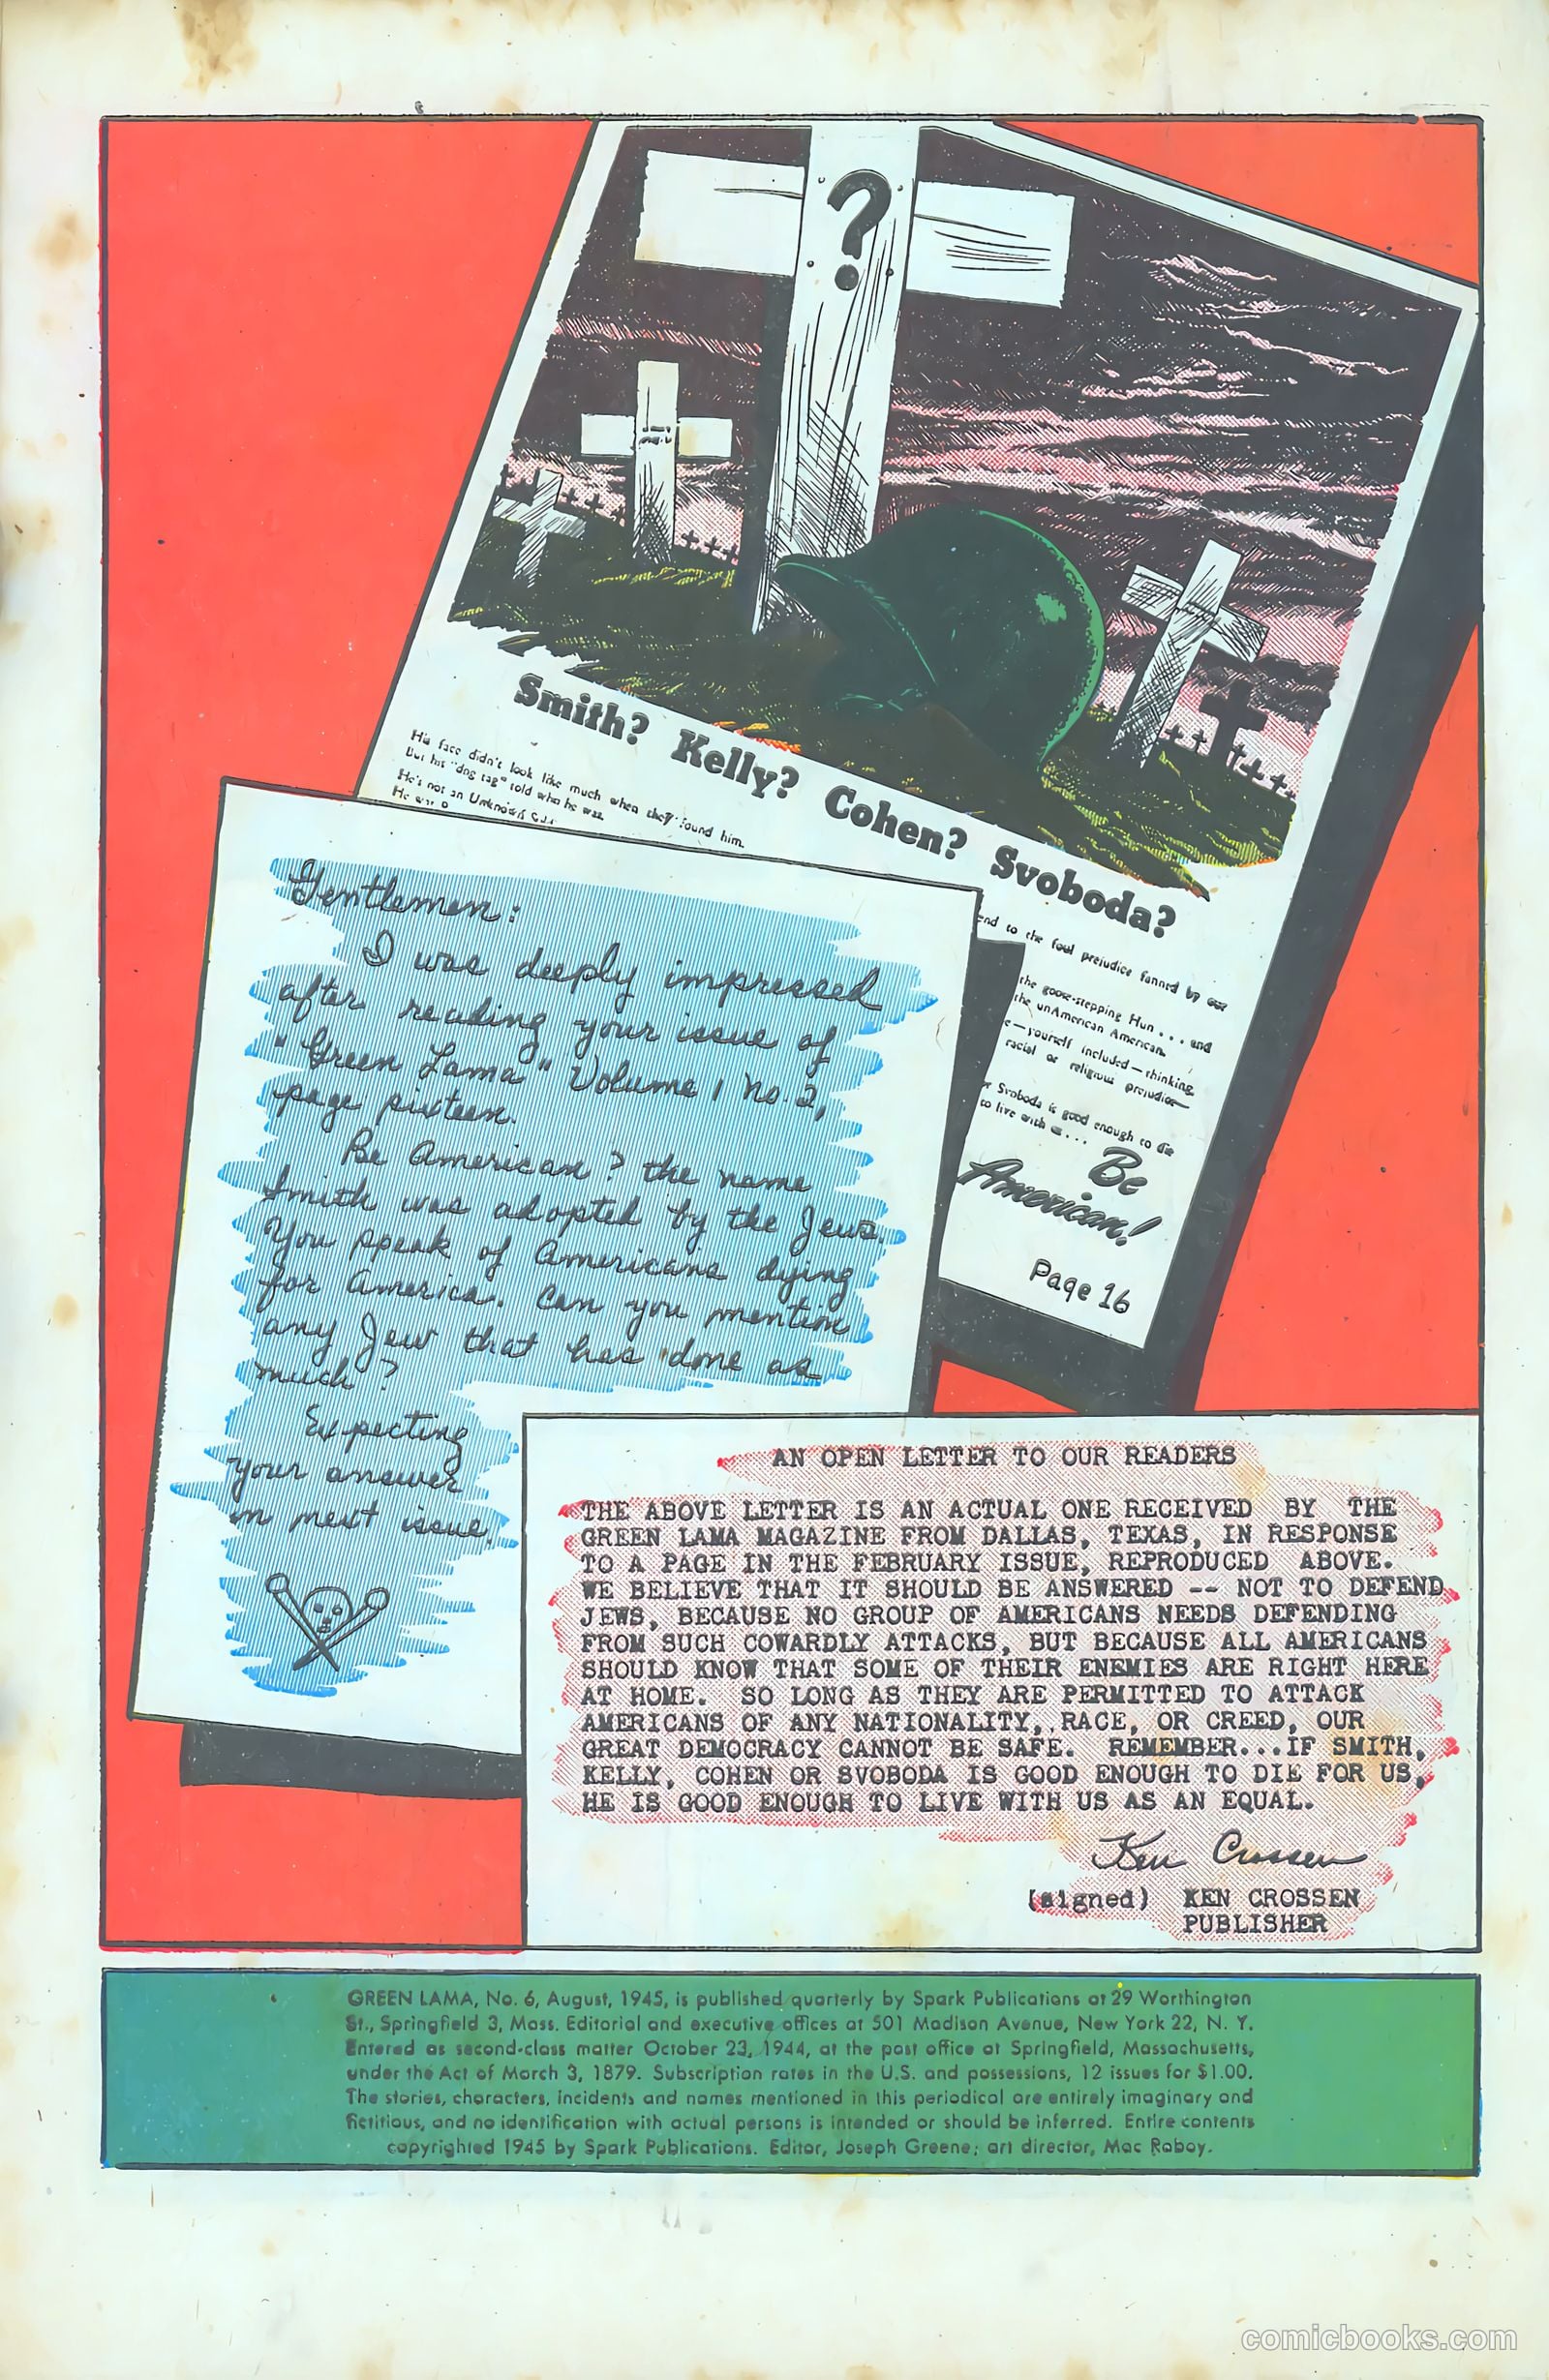 ?
Smith? Kelly? Cohen? Svoboda?
His face didn't look like much when they found him.
But his "dog tag" told who he was.
He's not an Unknown
He
end to the foul prejudice fanned by our
the goose-stepping Hun . . . and
the unAmerican American.
e—yourself included—thinking
racial or religious prejudice
r Svoboda is good enough to die
to live with
Be
American!
Page 16
Gentlemen:
I was deeply impressed
after reading your issue of
"Green Lama" Volume 1 no. 2,
page sixteen.
Be American? the name
Smith was adopted by the Jews.
You speak of Americans dying
for America. Can you mention
any Jew that has done as
much?
Expecting
your answer
in next issue.
AN OPEN LETTER TO OUR READERS
THE ABOVE LETTER IS AN ACTUAL ONE RECEIVED BY THE
GREEN LAMA MAGAZINE FROM DALLAS, TEXAS, IN RESPONSE
TO A PAGE IN THE FEBRUARY ISSUE, REPRODUCED ABOVE.
WE BELIEVE THAT IT SHOULD BE ANSWERED -- NOT TO DEFEND
JEWS, BECAUSE NO GROUP OF AMERICANS NEEDS DEFENDING
FROM SUCH COWARDLY ATTACKS, BUT BECAUSE ALL AMERICANS
SHOULD KNOW THAT SOME OF THEIR ENEMIES ARE RIGHT HERE
AT HOME. SO LONG AS THEY ARE PERMITTED TO ATTACK
AMERICANS OF ANY NATIONALITY, RACE, OR CREED, OUR
GREAT DEMOCRACY CANNOT BE SAFE. REMEMBER...IF SMITH,
KELLY, COHEN OR SVOBODA IS GOOD ENOUGH TO DIE FOR US,
HE IS GOOD ENOUGH TO LIVE WITH US AS AN EQUAL.
Ken Crossen
(signed) KEN CROSSEN
PUBLISHER
GREEN LAMA, No. 6, August, 1945, is published quarterly by Spark Publications at 29 Worthington
St., Springfield 3, Mass. Editorial and executive offices at 501 Madison Avenue, New York 22, N. Y.
Entered as second-class matter October 23, 1944, at the post office at Springfield, Massachusetts,
under the Act of March 3, 1879. Subscription rates in the U.S. and possessions, 12 issues for $1.00.
The stories, characters, incidents and names mentioned in this periodical are entirely imaginary and
fictitious, and no identification with actual persons is intended or should be inferred. Entire contents
copyrighted 1945 by Spark Publications. Editor, Joseph Greene; art director, Mac Raboy.
comicbooks.com